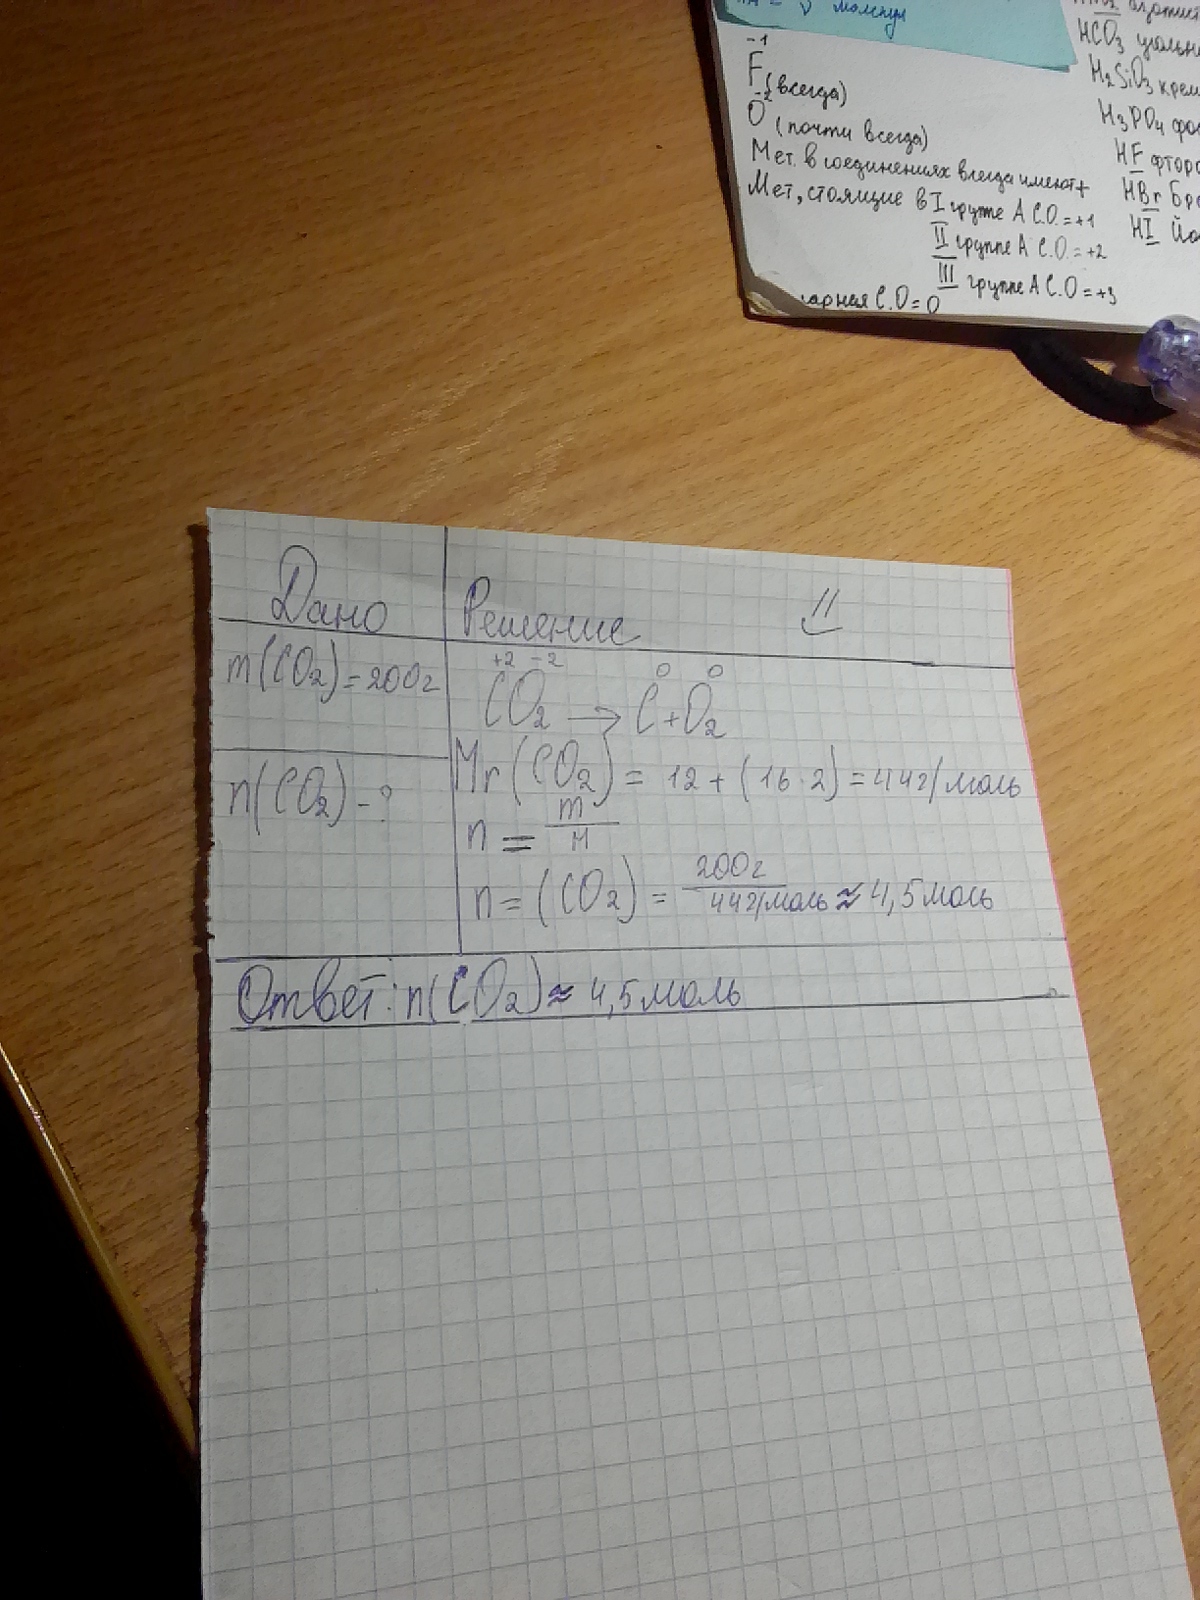 молекул
-1
F (всегда)
-2
O (почти всегда)
Мет. в соединениях всегда имеют +
Мет, стоящие в I группе А С.О. = +1
II группе А С.О. = +2
III группе А С.О = +3
С.О = 0
HCO3
H2SiO3 крем
H3PO4 фос
HF фторо
HBr Бро
HI Йо
Дано
Решение
m(CO2) = 200г
+2 -2 0 0
CO2 → C + O2
n(CO2) - ?
Mr(CO2) = 12 + (16 · 2) = 44г/моль
n = m/M
n = (CO2) = 200г/44г/моль ≈ 4,5моль
Ответ: n(CO2) ≈ 4,5моль